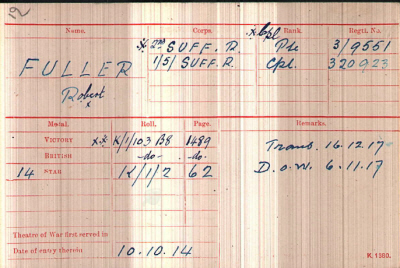 12
Name. Corps. Rank. Regtl. No.
x 2nd SUFF. R. x Cpl Pte 3/9551
FULLER 1/5/ SUFF. R. Cpl. 320923
Robert
x
Medal. Roll. Page. Remarks.
VICTORY x x K/1/103 B8 1489 Trans. 16.12.17
BRITISH -do- -do-
14 STAR K/1/2 62 D.o.W. 6.11.17
Theatre of War first served in
Date of entry therein 10.10.14
K 1380.